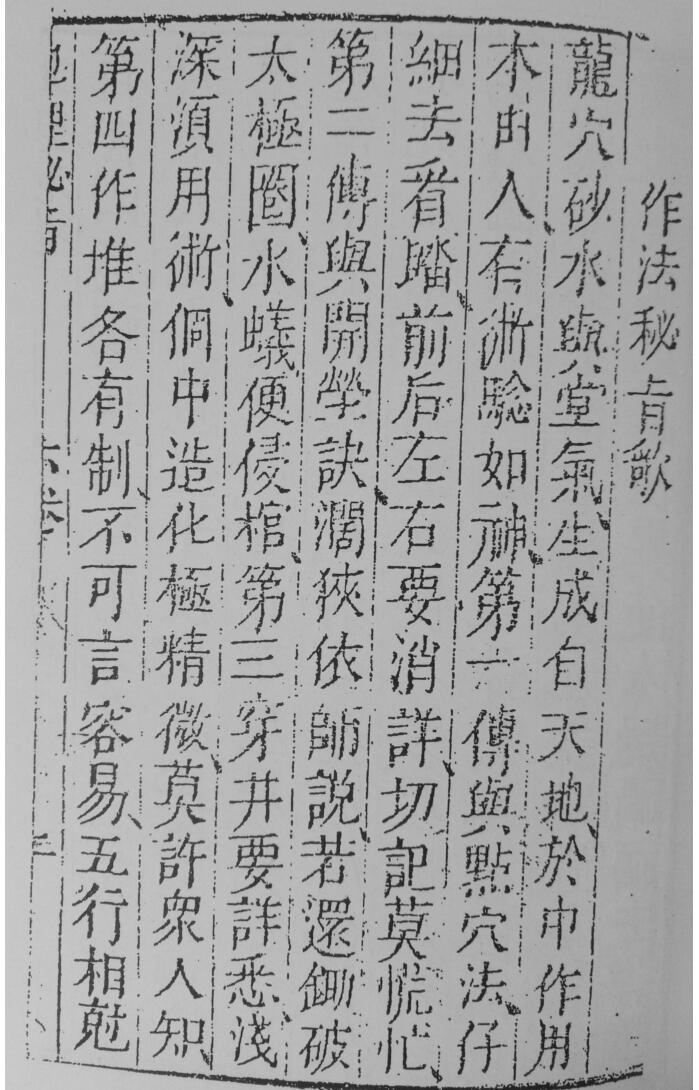 作法秘旨歌
龍穴砂水與堂氣生成自天地於中作用
本由人有術驗如神第一傳與點穴法仔
細去看踏前后左右要消詳切記莫慌忙
第二傳與開塋訣濶狹依師說若還鋤破
太極圈水蟻便侵棺第三穿井要詳悉淺
深須用術個中造化極精微莫許衆人知
第四作堆各有制不可言容易五行相尅
地理秘旨